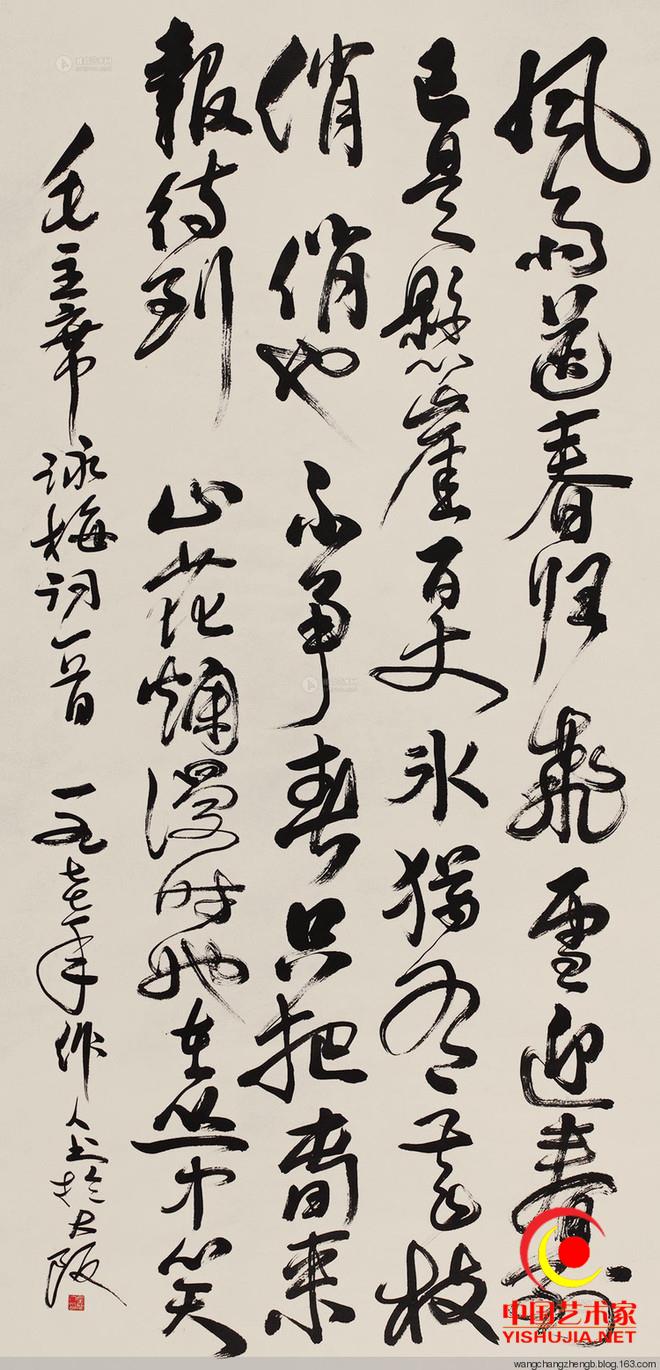 风雨送春归飛雪迎春
已是懸崖百丈冰猶有花枝
俏 俏也不争春只把春来
報待到 山花爛漫时她在丛中笑
毛主席詠梅词一首 一九七七年作人书於大阪
中国艺术家
YISHUJIA.NET
wangchangzhengb.blog.163.com